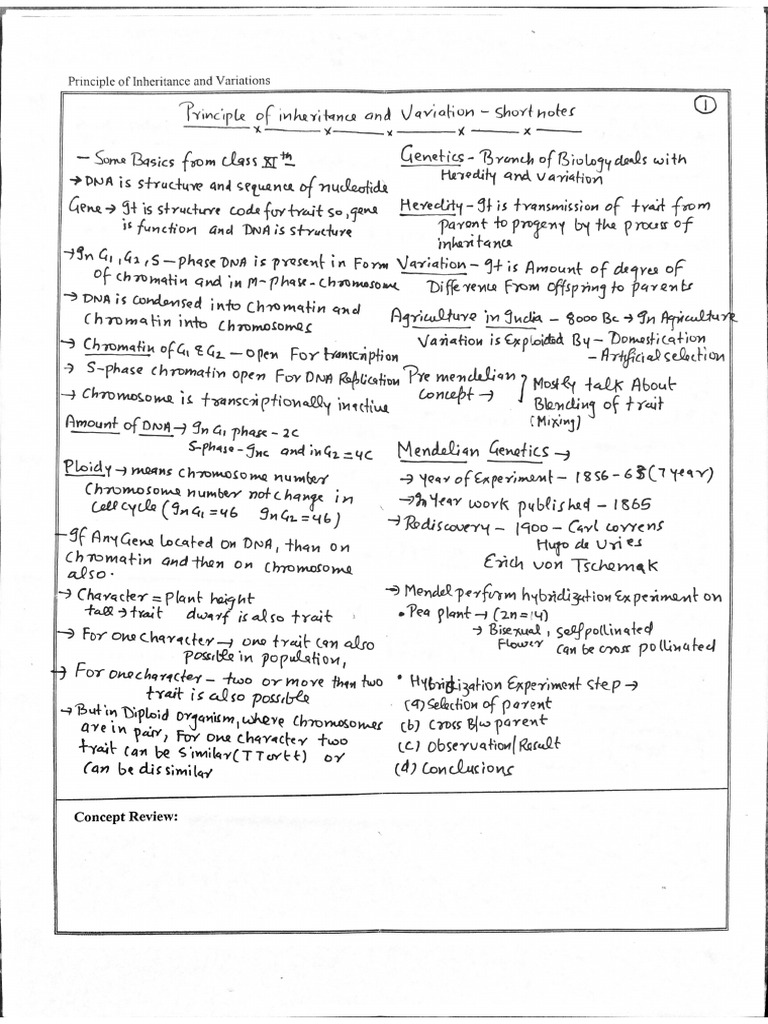 Principle of Inheritance and Variations
1
Principle of inheritance and Variation - short notes
- Some Basics from class XIth
→ DNA is structure and sequence of nucleotide
Gene → It is structure code for trait so, gene
is function and DNA is structure
→ In G1, G2, S - phase DNA is present in Form
of chromatin and in M-phase - chromosome
→ DNA is condensed into chromatin and
chromatin into chromosomes
→ Chromatin of G1 & G2 - open For transcription
→ S-phase chromatin open For DNA Replication
→ Chromosome is transcriptionally inactive
Amount of DNA → In G1 phase - 2C
S-phase - Inc and in G2 = 4C
Ploidy → means chromosome number
Chromosome number not change in
cell cycle (In G1 = 46 In G2 = 46)
- If Any Gene located on DNA, than on
chromatin and then on chromosome
also.
→ Character = Plant height
tall → trait dwarf is also trait
→ For one character → one trait can also
possible in population,
→ For one character - two or more than two
trait is also possible
→ But in Diploid Organism, where chromosomes
are in pair, For one character two
trait can be similar (TT or tt) or
can be dissimilar
Genetics - Branch of Biology deals with
Heredity and variation
Heredity - It is transmission of trait from
parent to progeny by the process of
inheritance
Variation - It is Amount of degree of
Difference From offspring to parents
Agriculture in India - 8000 BC → In Agriculture
Variation is Exploided By - Domestication
- Artificial selection
Pre mendelian
concept →
Mostly talk About
Blending of trait
(Mixing)
Mendelian Genetics →
→ Year of Experiment - 1856 - 63 (7 year)
→ In Year work published - 1865
→ Rediscovery - 1900 - Carl correns
Hugo de Vries
Erich von Tschemak
→ Mendel perform hybridization Experiment on
• Pea plant → (2n = 14)
→ Bisexual, self pollinated
Flower can be cross pollinated
• Hybridization Experiment step →
(a) Selection of parent
(b) Cross B/w parent
(c) Observation/Result
(d) Conclusions
Concept Review: